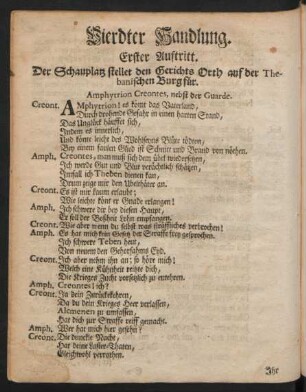 Vierdter Handlung.
Erster Auftritt.
Der Schauplatz stellet den Gerichts Orth auf der The-
banischen Burg für.
Amphytrion Creontes, nebst der Guarde.
Creont. Amphytrion! es könt das Vaterland,
Durch drohende Gefahr in einen harten Stand,
Das Unglück häuffet sich,
Indem es innerlich,
Und könt leicht des Wohlseyns Blüte tödten,
Bey einem faulen Glid ist Schnitt und Brand von nöthen.
Amph. Creontes, man muß sich dem übel widersetzen,
Ich werde Gut und Blut verächtlich schätzen,
Imfall ich Theben dienen kan,
Drum zeige mir den Übelthäter an.
Creont. Es ist mir kaum erlaubt;
Wie leichte könt er Gnade erlangen!
Amph. Ich schwere dir bey diesen Haupt,
Er soll der Boßheit Lohn empfangen.
Creont. Wie aber wenn du selbst was sträffliches verbrochen!
Amph. Es hat mich kein Gesetz der Straffe frey gesprochen.
Ich schwere Teben heut,
Von neuem den Gehorsahms Eyd.
Creont. Ich aber nehm ihn an; so höre mich!
Welch eine Kühnheit reitzte dich,
Die Krieges Zucht vorsätzlich zu entehren.
Amph. Creontes! ich?
Creont. Ja dein Zurückekehren,
Da du dein Krieges Heer verlassen,
Alcmenen zu umfassen,
Hat dich zur Straffe reiff gemacht.
Amph. Wer hat mich hier gesehn?
Creont. Die dunckle Nacht,
Hat deine Laster-Thaten,
Gleichwohl verrathen.
Ihr